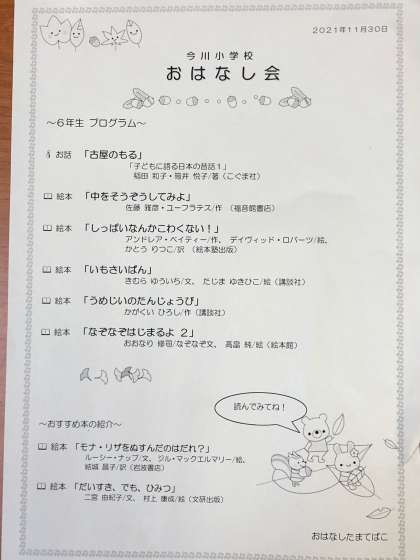 2021年11月30日
今川小学校
おはなし会
～6年生 プログラム～
お話 「古屋のもる」
「子どもに語る日本の昔話1」
稲田 和子・筒井 悦子/著（こぐま社）
絵本 「中をそうぞうしてみよ」
佐藤 雅彦・ユーフラテス/作 （福音館書店）
絵本 「しっぱいなんかこわくない！」
アンドレア・ベイティー/作、 デイヴィッド・ロバーツ/絵、
かとう りつこ/訳 （絵本塾出版）
絵本 「いもさいばん」
きむら ゆういち/文、 たじま ゆきひこ/絵（講談社）
絵本 「うめじいのたんじょうび」
かがくい ひろし/作（講談社）
絵本 「なぞなぞはじまるよ 2」
おおなり 修司/なぞなぞ文、 高畠 純/絵（絵本館）
読んでみてね！
～おすすめ本の紹介～
絵本 「モナ・リザをぬすんだのはだれ？」
ルーシー・ナップ/文、 ジル・マックエルマリー/絵、
結城 昌子/訳（岩波書店）
絵本 「だいすき、でも、ひみつ」
二宮 由紀子/文、 村上 康成/絵（文研出版）
おはなしたまてばこ